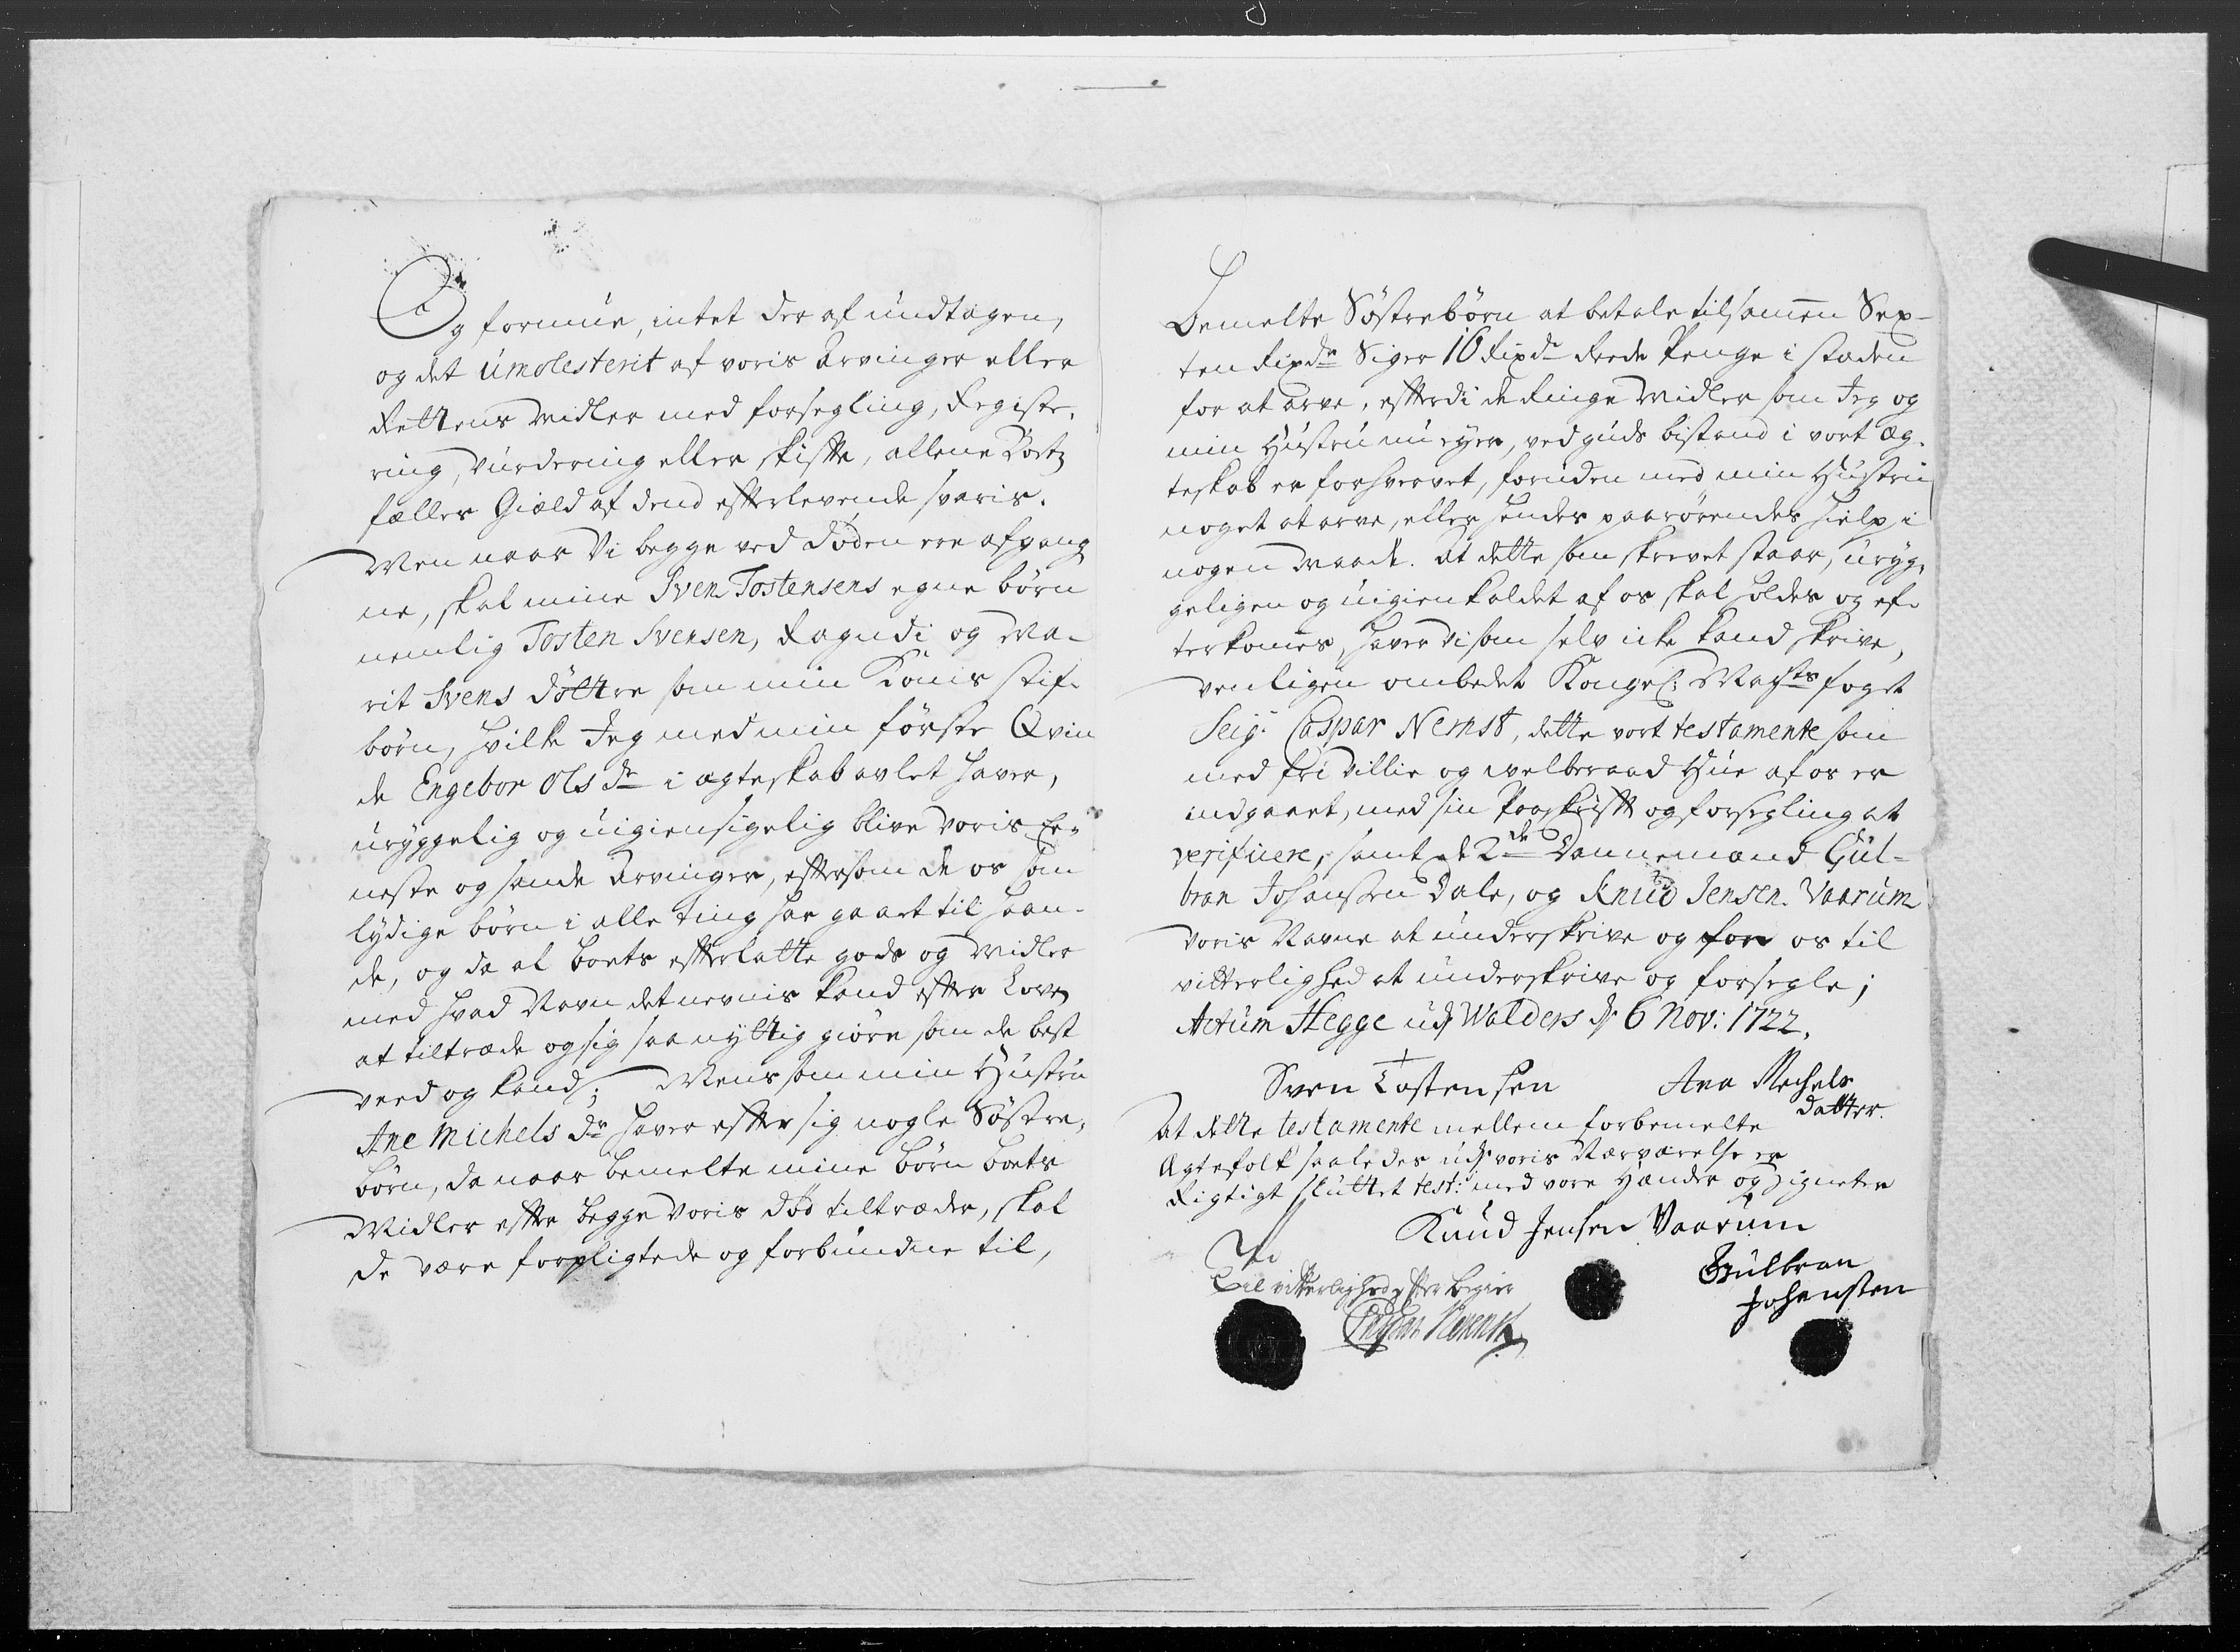 Og formue, intet der af undtagen,
og det umolesterit af voris Arvinger eller
Rettens Midler med forsegling, Registe,
ring, Vurdering eller skifte, allene Boets
fælles Gield af dend efterlevende svaris.
Men naar Vi begge ved døden ere afgang
ne, skal mine Sven Tostensens egne børn
nemlig Tosten Svensen, Ragndi og Ma-
rit Svens døttre som min Konis stif-
børn, hvilke Jeg med min første Qvin
de Engebor Ols dr i ægteskab avlet haver,
uryggelig og uigiensigelig blive voris Ee-
neste og sande Arvinger, eftersom de os som
lydige børn i alle ting har gaaet til haan-
de, og da al boets efterlatte gods og Midler
med hvad Navn det nevnis kand efter Loven
at tiltræde og sig saa nyttig giøre som de best
veed og kand; Mens som min Hustru
Ane Michels dr haver efter sig nogle Søstre,
børn, da naar bemelte mine børn boets
Midler efter begge voris død tiltræder, skal
de være forpligtede og forbundne til,
Bemelte Søstrebørn at betale tilsamen Sex-
ten Rixdr Siger 16 Rixdr Reede Penge i steden
for at arve, efterdi de Ringe Midler som Jeg og
min Hustru nu eyer, ved guds bistand i vort Æg-
teskab er forhvervet, foruden med min Hustru
noget at arve, eller hendes paarørendes hielp i
nogen Maade. At dette som skrevet staar, uryg,
geligen og uigienkaldet af os skal holdes og ef-
terkomes, haver Vi som selv icke kand skrive,
venligen ombedet Kongel: Maysts foget
Seigr Caspar Nernst, dette vort testamente som
med fri Villie og welberaad Hue af os er
indgaaet, med sin Paaskrift og forsegling at
verificere, samt de 2de Dannemænd Gul-
bran Johansen Dale, og Knud Jensen Vaarum
voris Navne at underskrive og for os til
vitterlighed at underskrive og forsegle;
Actum Hegge udj Walders d 6 Nov: 1722.
Sven Tostensen Ana Mechels
datter.
At dette testamente mellem forbemelte
Ægtefolk saaledes udj voris Nærværelse er
Rigtigt sluttet test: med vore Hænder og Zigneter
Knud Jensen Vaarum
Til vitterlighed efter begier
Gulbran
Johansen
Caspar Nernst